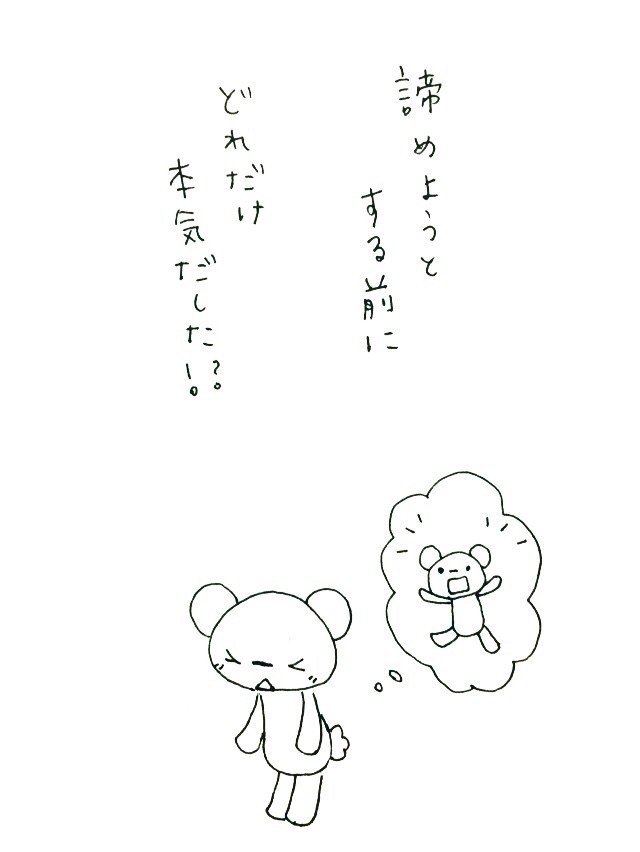 諦めようと
する前に
どれだけ
本気だした!?